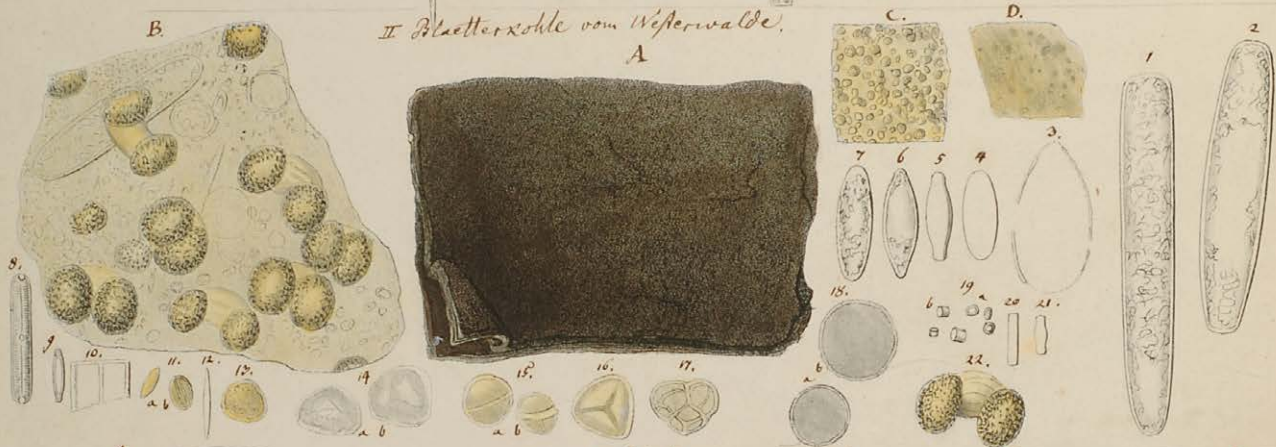 II Blaetterkohle vom Westerwalde.
A
B.
C.
D.
1
2
3.
4
5
6
7
13
8.
9
10.
11.
a b
12.
13.
14
a b
15.
a b
16.
17.
18.
b
a
19
b a
20
21.
22.